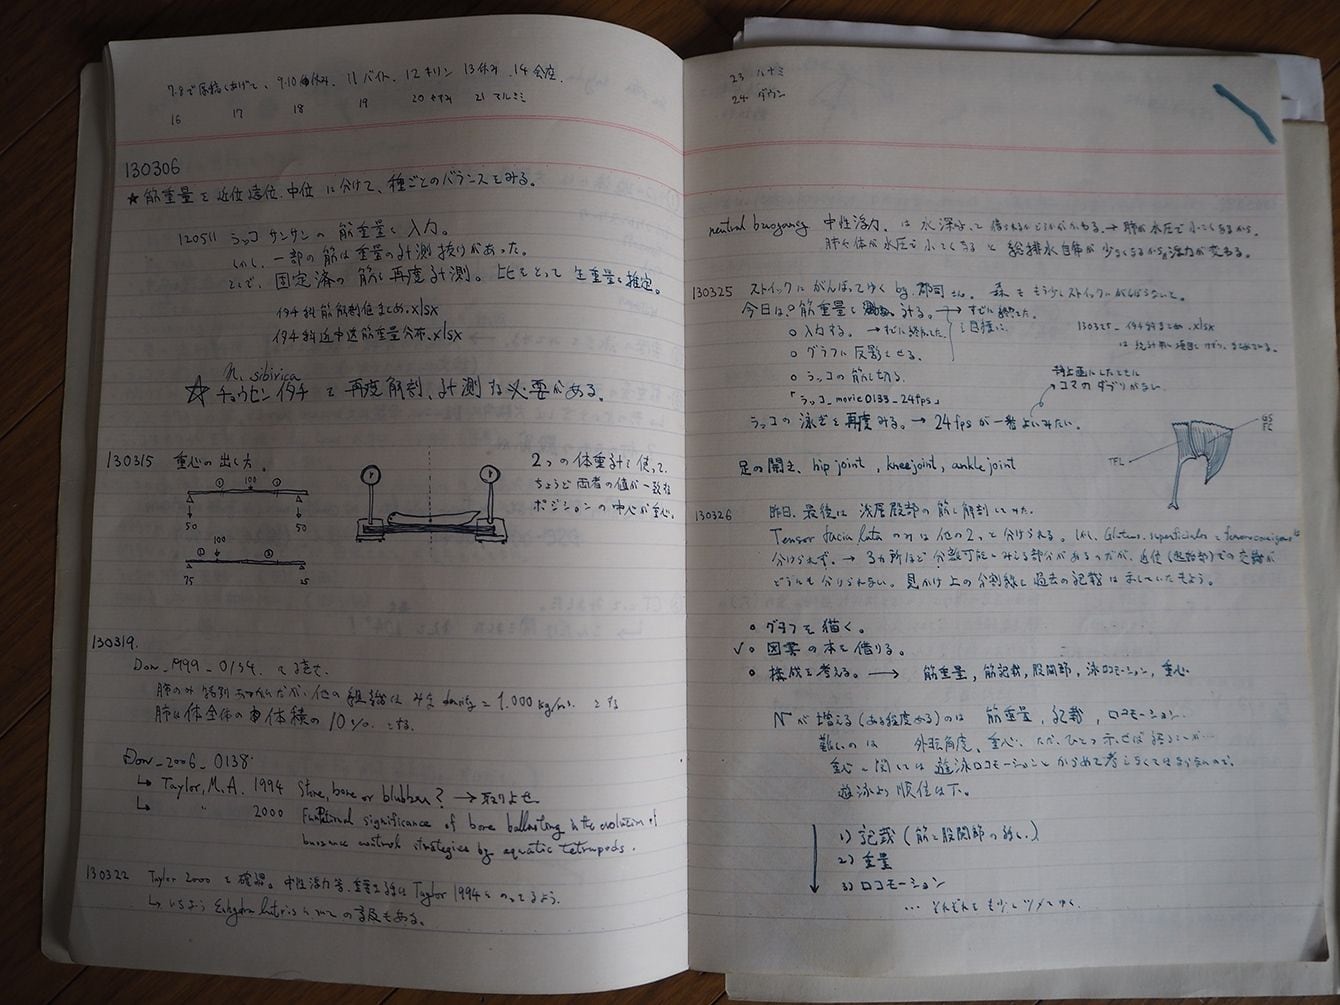 7.8で原稿あげて、9.10 休み. 11 バイト. 12 キリン 13 休み. 14
16 17 18 19 20 休み 21
130306
★ 筋重量を近位遠位.中位に分けて、種ごとのバランスをみる。
120511 ラッコ サンサンの筋重量を入力。
しかし、一部の筋は重量の計測抜けがあった。
そこで、固定済の筋を再度計測。比をとって生重量を推定。
イタチ科筋解剖値まとめ.xlsx
イタチ科近中遠筋重量分布.xlsx
n. sibirica
☆ チョウセンイタチを再度解剖、計測する必要がある。
130315 重心の出し方。
① 100 ②
50 50
① 100 ②
75 25
2つの体重計を使って、
ちょうど両者の値が一致する
ポジションの中心が重心。
130319.
Dom_1999_0134.
肺のみ特別あつかいだが、他の組織は density = 1.000 kg/m³ とする
肺は体全体の体積の10%とする。
Dom_2006_0138.
↳ Taylor, M.A. 1994 Stone, bone or blubber? → 取りよせ
↳ 〃 2000 Functional significance of bone ballasting in the evolution of
buoyancy control strategies by aquatic tetrapods.
130322 Taylor 2000 を確認。中性浮力等、重要な話は Taylor 1994 にのってるよう.
↳ いちおう Enhydra lutris についての言及もある。
23 ハナミ
24 ダウン
neutral buoyancy 中性浮力. は水深によって → 肺が水圧で小さくなるから.
肺や体が水圧で小さくなると 給排水自体が少なくなるから浮力が変わる。
130325 ストイックにがんばってゆく by. 郡司さん. 森ももう少しストイックにがんばらないと。
今日は、○ 筋重量を計る。→ すでに終了た.
○ 入力する. → すでに終了した.
目標に.
○ グラフに反映させる.
130325_イタチ科まとめ.xlsx
は統計用に項目をけずり、まとめている.
○ ラッコの筋を切る.
「ラッコ_movie0133_24fps」
静止画にしたときに
コマのダブりがない.
ラッコの泳ぎを再度みる. → 24fpsが一番よいみたい.
GS
FC
TFL
足の開き、hip joint, knee joint, ankle joint
130326 昨日、最後は浅層殿部の筋を解剖していた.
Tensor facia lata のみは他の2つと分けられる. しかし、Gluteus. superficialis と femorococcygeus は
分けられず. → 3ヵ所ほど分離可能にみえる部分があるのだが、近位(起始部)での交雑が
どうしても分けられない. 見かけ上の分割線を過去の記載は示していたもよう.
○ グラフを描く。
✓○ 図書の本を借りる。
○ 構成を考える。→ 筋重量, 筋記載, 股関節, 泳ロコモーション, 重心
Nが増える(ある程度ある)のは 筋重量, 記載, ロコモーション.
難しいのは 外転角度、重心. ただ、ひとつ示せば語ることが…
重心に関しては遊泳ロコモーションとからめて考えなくてはならないので、
遊泳より順位は下。
1) 記載 (筋と股関節の話し)
2) 重量
3) ロコモーション
… それぞれをもう少しツメてゆく.